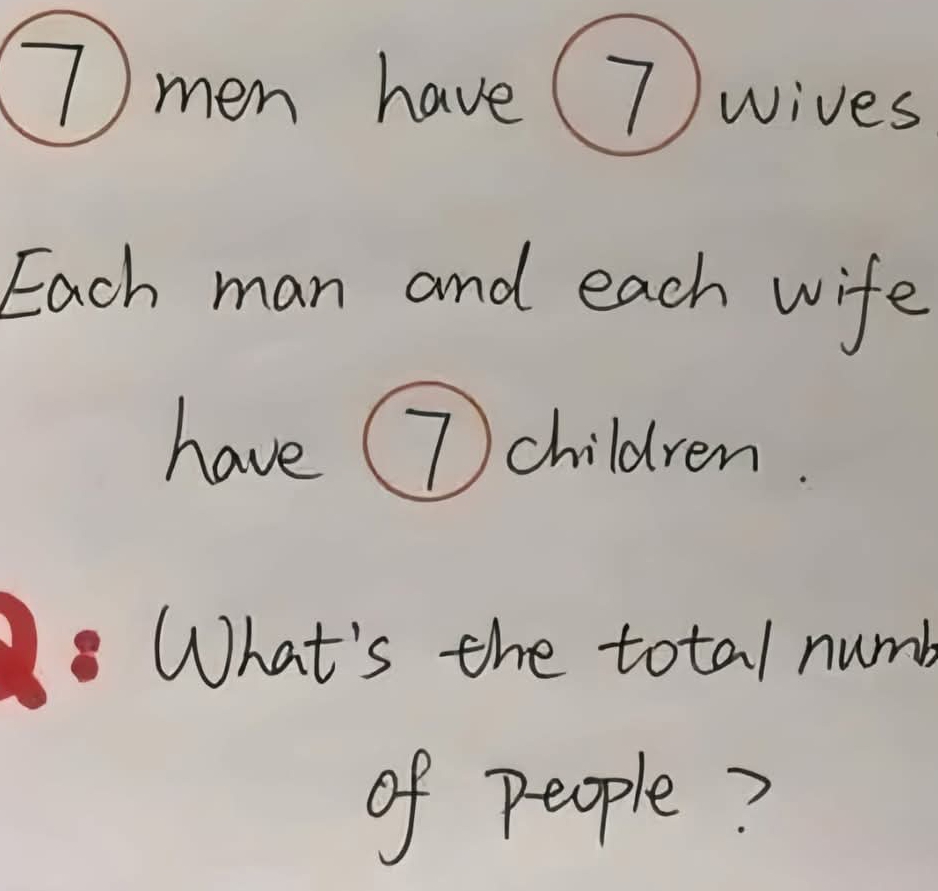 7 men have 7 wives.
Each man and each wife
have 7 children.
Q: What's the total numb
of people?